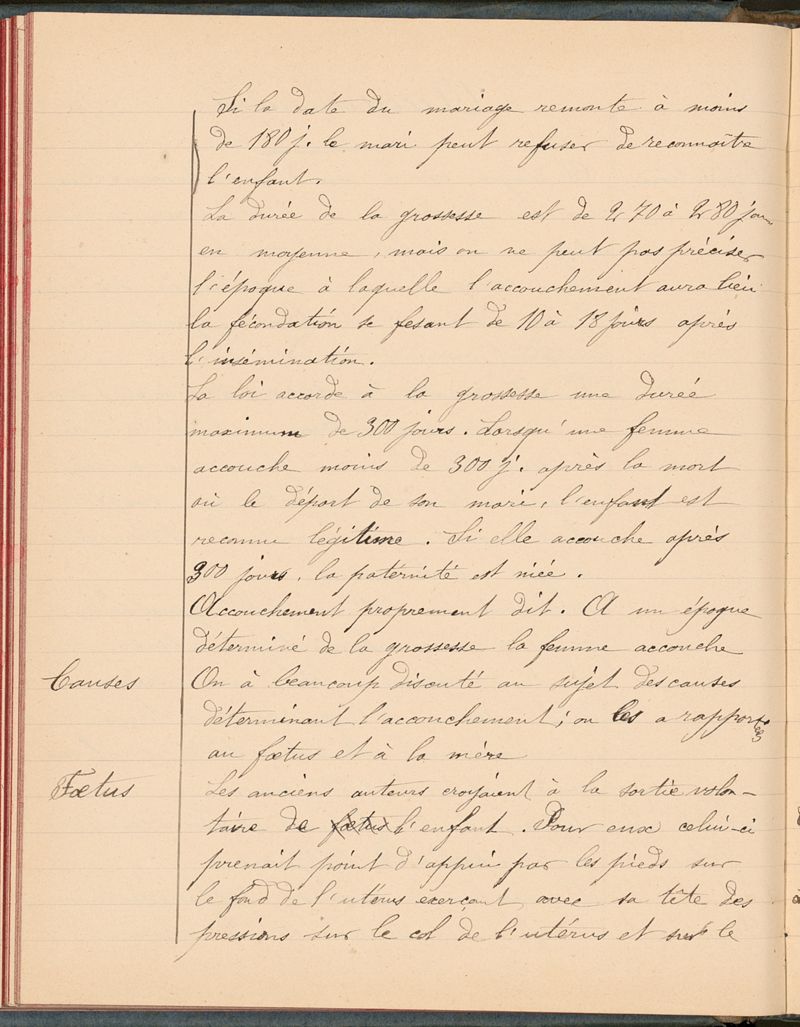 Si la date du mariage remonte à moins
de 180 j. le mari peut refuser de reconnoître
l'enfant.
La durée de la grossesse est de 270 à 280 jours
en moyenne, mais on ne peut pas préciser
l'époque à laquelle l'accouchement aura lieu
la fécondation se fesant de 10 à 18 jours après
l'insémination.
La loi accorde à la grossesse une durée
maximum de 300 jours. Lorsqu'une femme
accouche moins de 300 j. après la mort
où le départ de son mari, l'enfant est
reconnu légitime. Si elle accouche après
300 jours, la paternité est niée.
Accouchement proprement dit. A un époque
déterminé de la grossesse la femme accouche
Causes On à beaucoup discuté au sujet des causes
déterminant l'accouchement; on les a rapportées
au fœtus et à la mère
Fœtus Les anciens auteurs croyaient à la sortie volon-
taire de fœtus l'enfant. Pour eux celui-ci
prenait point d'appui par les pieds sur
le fond de l'utérus exercant avec sa tête des
pressions sur le col de l'utérus et sur le